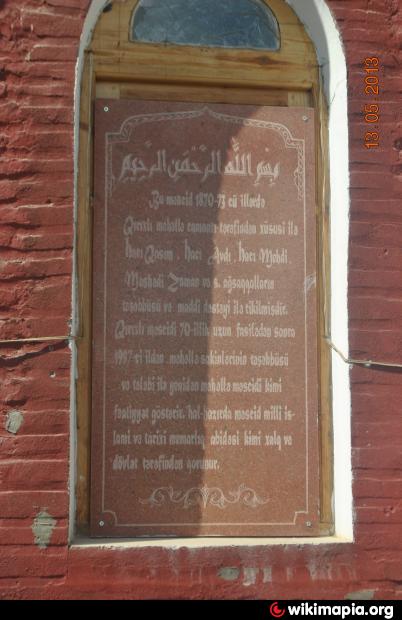 بسم الله الرحمن الرحيم
Bu məscid 1870-73 cü illərdə
Qırıxlı məhəllə camaatı tərəfindən xüsusi ilə
Hacı Qasım, Hacı Avdı, Hacı Mehdi
Məşhədi Zaman və s. ağsaqqalların
təşəbbüsü və maddi dəstəyi ilə tikilmişdir.
Qırıxlı məscidi 70-illik uzun fasilədən sonra
1997-ci ildən məhəllə sakinlərinin təşəbbüsü
və tələbi ilə yenidən məhəllə məscidi kimi
fəaliyyət göstərir. hal-hazırda məscid milli is-
lami və tarixi memarlıq abidəsi kimi xalq və
dövlət tərəfindən qorunur.
13.05.2013
wikimapia.org